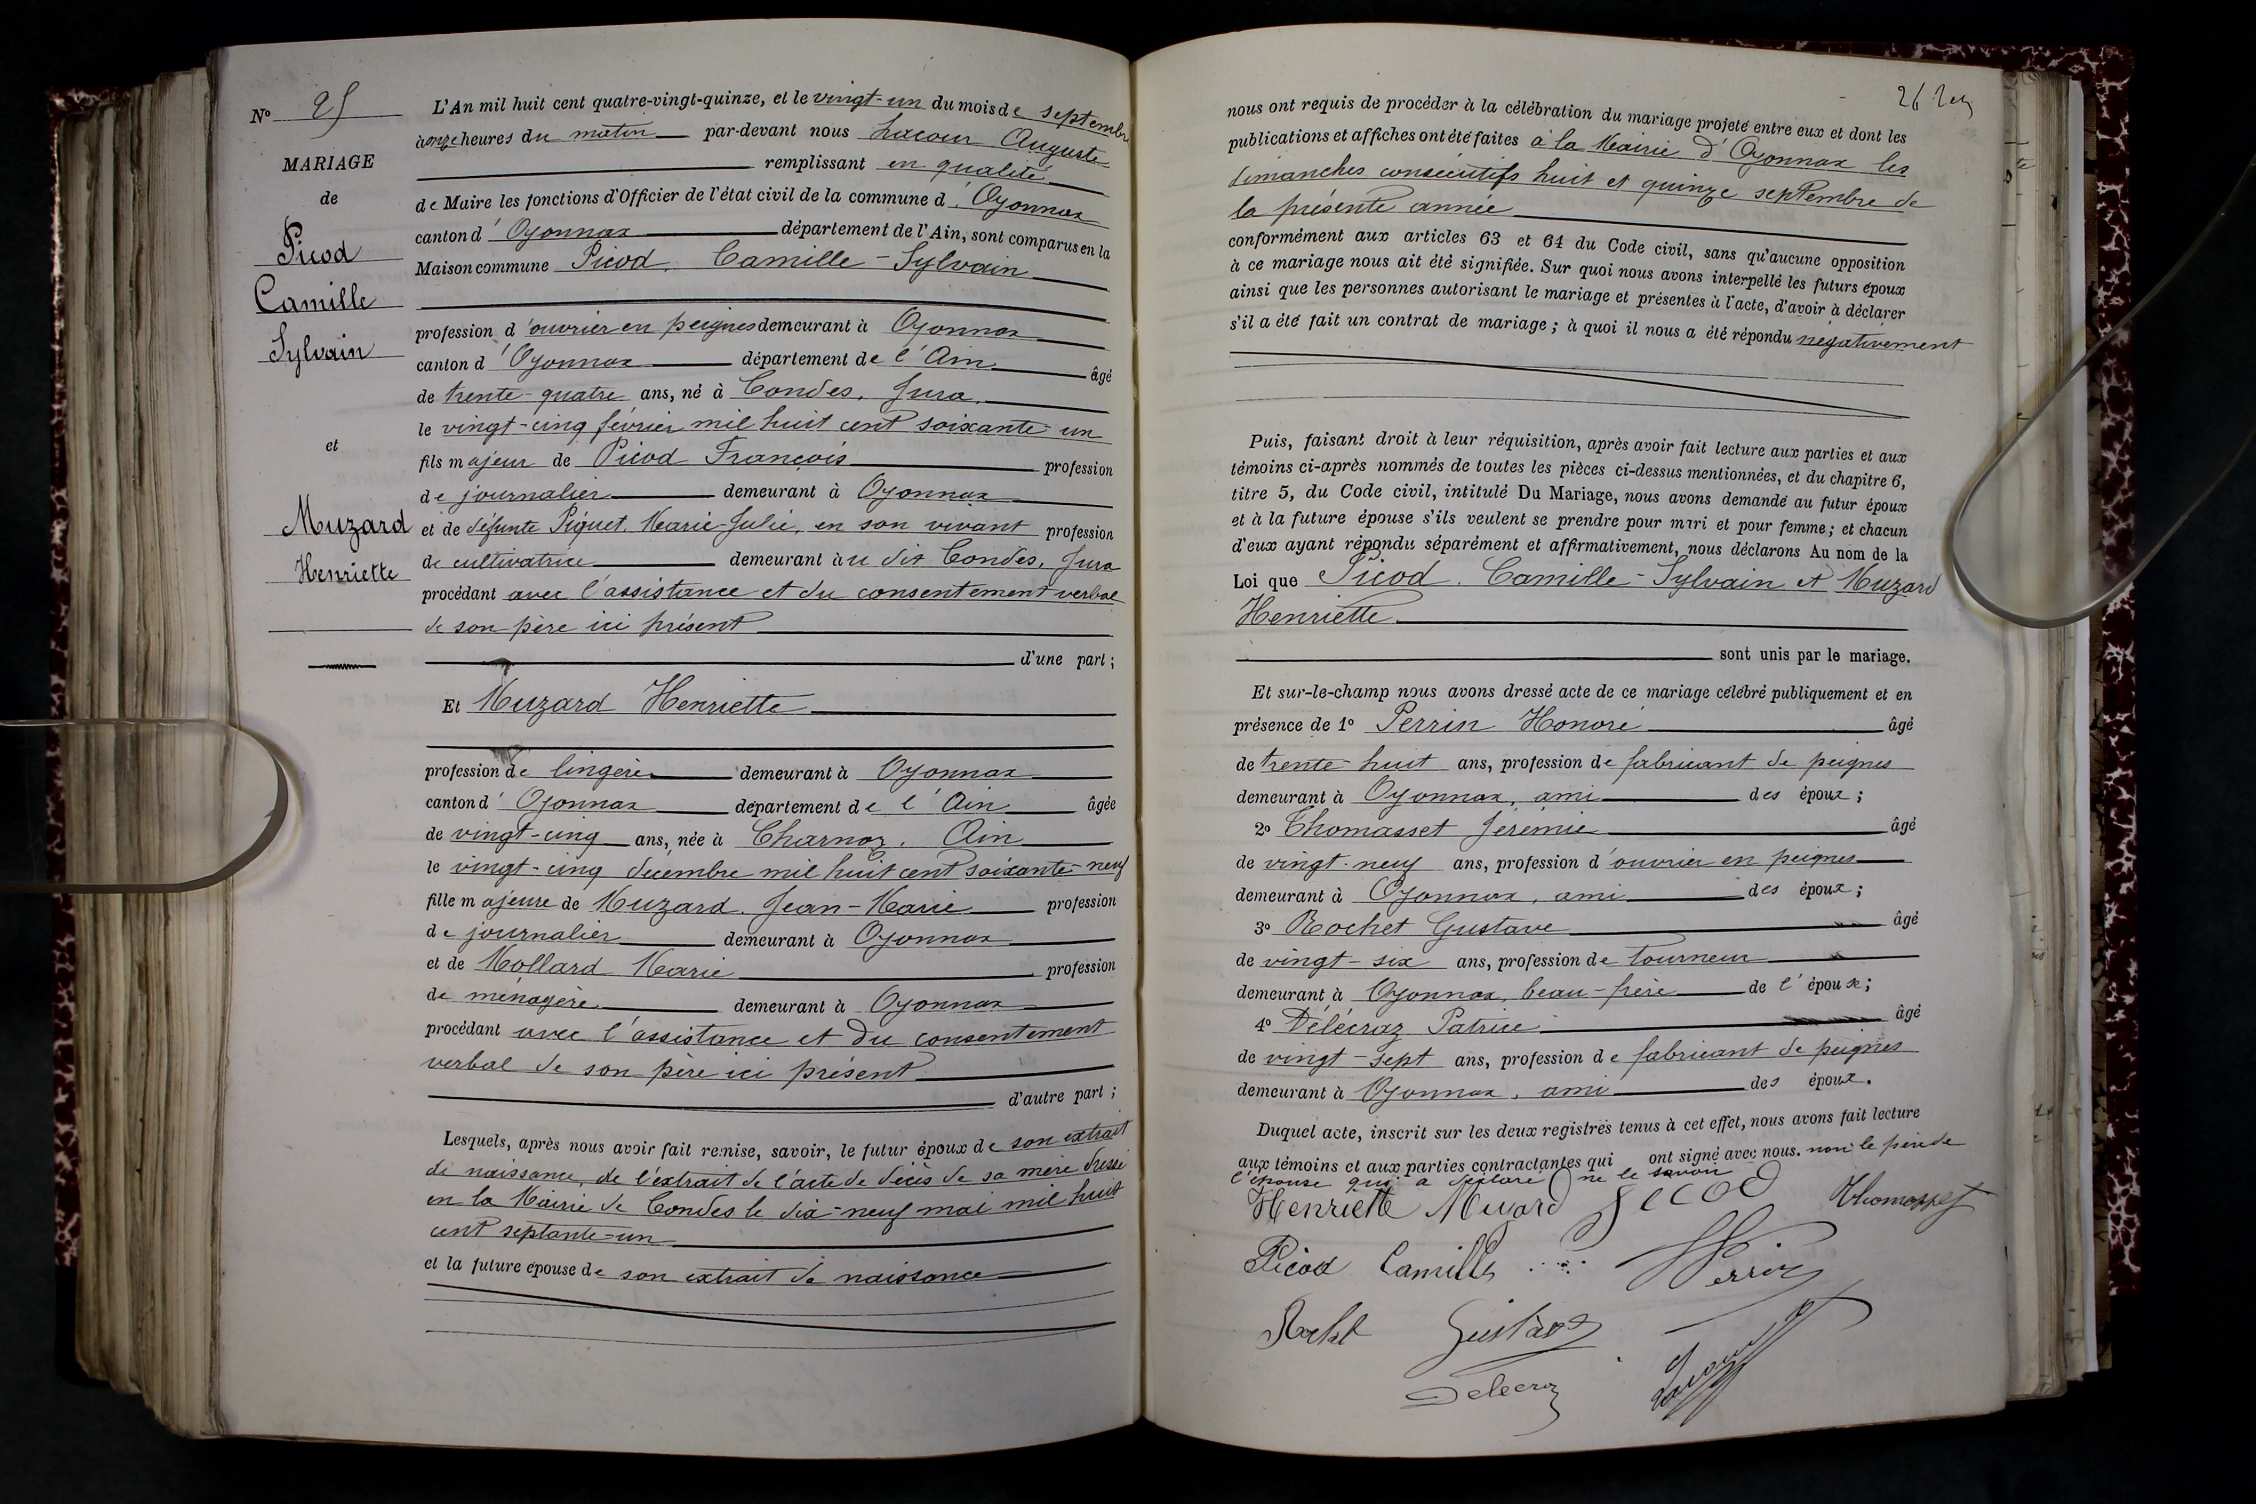 Nº 25
MARIAGE
de
Picod
Camille
Sylvain
et
Muzard
Henriette
L'An mil huit cent quatre-vingt-quinze, et le vingt-un du mois de septembre
à onze heures du matin par-devant nous Lacour Auguste
remplissant en qualité
de Maire les fonctions d'Officier de l'état civil de la commune d'Oyonnax
canton d'Oyonnax département de l'Ain, sont comparus en la
Maison commune Picod, Camille-Sylvain
profession d'ouvrier en peignes demeurant à Oyonnax
canton d'Oyonnax département de l'Ain âgé
de trente-quatre ans, né à Condes, Jura,
le vingt-cinq février mil huit cent soixante-un
fils majeur de Picod François profession
de journalier demeurant à Oyonnax
et de défunte Piquet, Marie-Julie, en son vivant profession
de cultivatrice demeurant àu dit Condes, Jura
procédant avec l'assistance et du consentement verbal
de son père ici présent
d'une part;
Et Muzard Henriette
profession de lingère demeurant à Oyonnax
canton d'Oyonnax département de l'Ain âgée
de vingt-cinq ans, née à Charnoz, Ain
le vingt-cinq décembre mil huit cent soixante-neuf
fille majeure de Muzard, Jean-Marie profession
de journalier demeurant à Oyonnax
et de Mollard Marie profession
de ménagère demeurant à Oyonnax
procédant avec l'assistance et du consentement
verbal de son père ici présent
d'autre part;
Lesquels, après nous avoir fait remise, savoir, le futur époux de son extrait
de naissance, de l'extrait de l'acte de décès de sa mère dressé
en la Mairie de Condes le dix-neuf mai mil huit
cent septante-un
et la future épouse de son extrait de naissance
26
nous ont requis de procéder à la célébration du mariage projeté entre eux et dont les
publications et affiches ont été faites à la Mairie d'Oyonnax les
dimanches consécutifs huit et quinze septembre de
la présente année
conformément aux articles 63 et 64 du Code civil, sans qu'aucune opposition
à ce mariage nous ait été signifiée. Sur quoi nous avons interpellé les futurs époux
ainsi que les personnes autorisant le mariage et présentes à l'acte, d'avoir à déclarer
s'il a été fait un contrat de mariage; à quoi il nous a été répondu négativement
Puis, faisant droit à leur réquisition, après avoir fait lecture aux parties et aux
témoins ci-après nommés de toutes les pièces ci-dessus mentionnées, et du chapitre 6,
titre 5, du Code civil, intitulé Du Mariage, nous avons demandé au futur époux
et à la future épouse s'ils veulent se prendre pour mari et pour femme; et chacun
d'eux ayant répondu séparément et affirmativement, nous déclarons Au nom de la
Loi que Picod, Camille-Sylvain et Muzard
Henriette
sont unis par le mariage.
Et sur-le-champ nous avons dressé acte de ce mariage célébré publiquement et en
présence de 1º Perrin Honoré âgé
de trente-huit ans, profession de fabricant de peignes
demeurant à Oyonnax, ami des époux;
2º Thomasset Jérémie âgé
de vingt-neuf ans, profession d'ouvrier en peignes
demeurant à Oyonnax, ami des époux;
3º Rochet Gustave âgé
de vingt-six ans, profession de tourneur
demeurant à Oyonnax, beau-frère de l'épouse;
4º Délécraz Patrice âgé
de vingt-sept ans, profession de fabricant de peignes
demeurant à Oyonnax, ami des époux.
Duquel acte, inscrit sur les deux registres tenus à cet effet, nous avons fait lecture
aux témoins et aux parties contractantes qui ont signé avec nous. non le père de
l'épouse qui a déclaré ne le savoir
Henriette Muzard Picod Thomasset
Picod Camille Perrin
Rochet Gustave
Delecraz Lacour